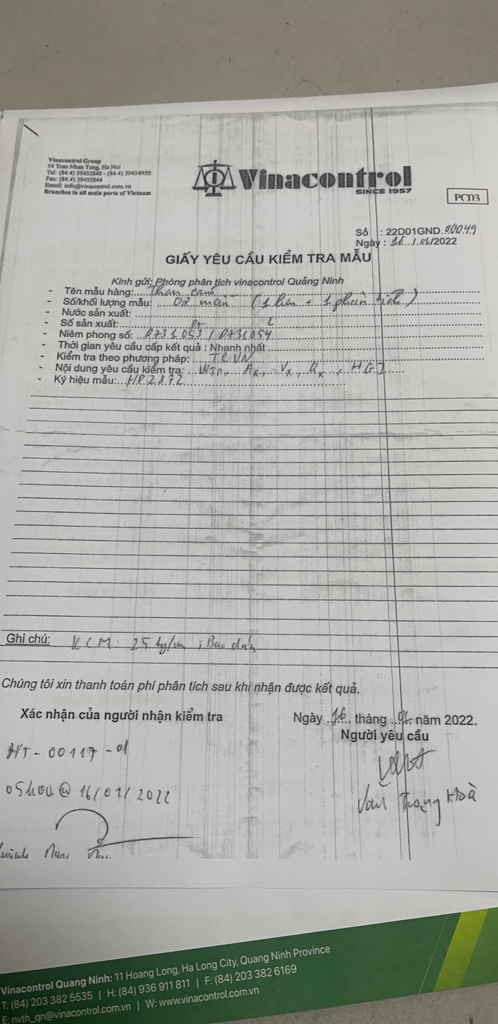 Vinacontrol Group
54 Tran Nhan Tong, Ha Noi
Tel: (84.4) 39433840 - (84.4) 39434950
Fax: (84.4) 39433844
Email: info@vinacontrol.com.vn
Branches in all main ports of Vietnam
Vinacontrol
SINCE 1957
PCD3
Số : 22D01GND.00049
Ngày : 16 / 01/2022
GIẤY YÊU CẦU KIỂM TRA MẪU
Kính gửi: Phòng phân tích vinacontrol Quảng Ninh
- Tên mẫu hàng: Than cám
- Số/khối lượng mẫu: 02 mẫu (1 lưu + 1 phân tích)
- Nước sản xuất:
- Số sản xuất:
- Niêm phong số: 0731053 / 0731054
- Thời gian yêu cầu cấp kết quả : Nhanh nhất
- Kiểm tra theo phương pháp: TCVN
- Nội dung yêu cầu kiểm tra: Ak, Vk, Qk, HGI
- Ký hiệu mẫu: HP2872
Ghi chú: KLM: 25 kg/
Chúng tôi xin thanh toán phí phân tích sau khi nhận được kết quả.
Xác nhận của người nhận kiểm tra
Ngày 16 tháng 01 năm 2022.
Người yêu cầu
HT-00117-01
05h00 @ 16/01/2022
Văn Trọng Khoà
Vinacontrol Quang Ninh: 11 Hoang Long, Ha Long City, Quang Ninh Province
T: (84) 203 382 5535 | H: (84) 936 911 811 | F: (84) 203 382 6169
E: nvth_qn@vinacontrol.com.vn | W: www.vinacontrol.com.vn